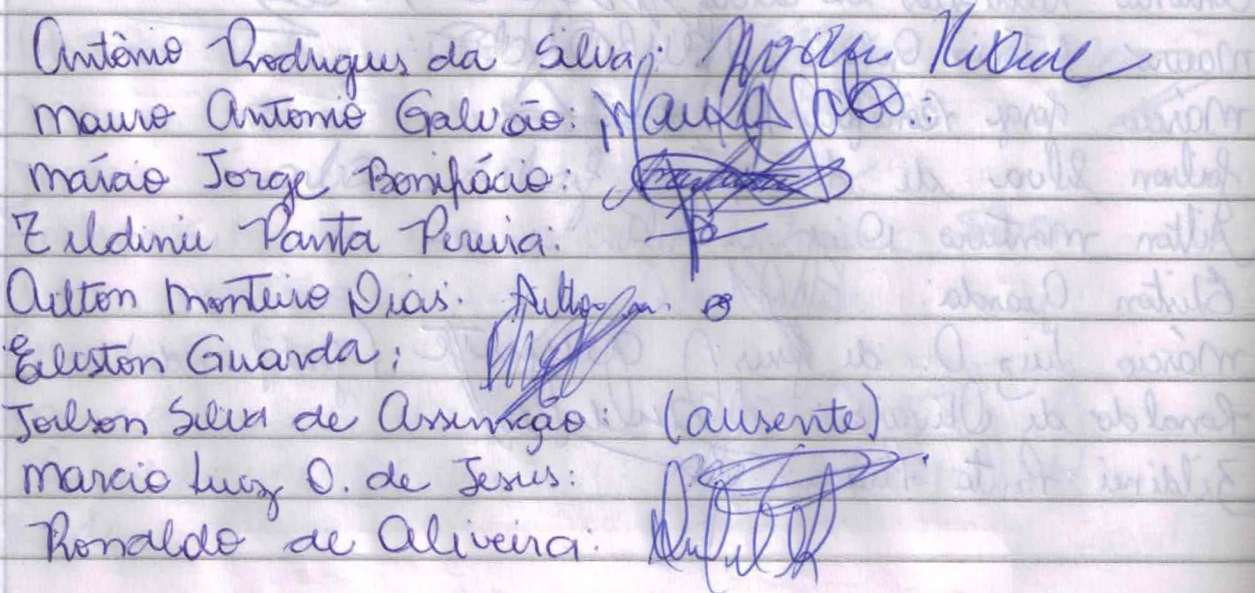 Antônio Rodrigues da Silva:
Mauro Antonio Galvão:
Márcio Jorge Bonifácio:
Zildinei Panta Pereira:
Ailton Monteiro Dias.
Eliston Guarda:
Joilson Silva de Assunção: (ausente)
Marcio Luiz O. de Jesus:
Ronaldo de Oliveira: